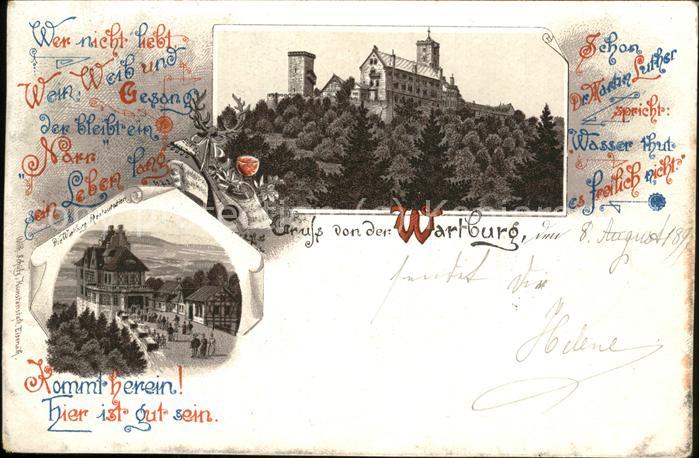 Wer nicht liebt
Wein, Weib und
Gesang
der bleibt ein
"Narr"
sein Leben lang
Schon
Dr. Martin Luther
spricht:
Wasser thut
es freilich nicht."
Gruss von der Wartburg,
den 8. August 189
sendet Dir
Helene
Die Wartburg Restauration
Kommt herein!
Hier ist gut sein.